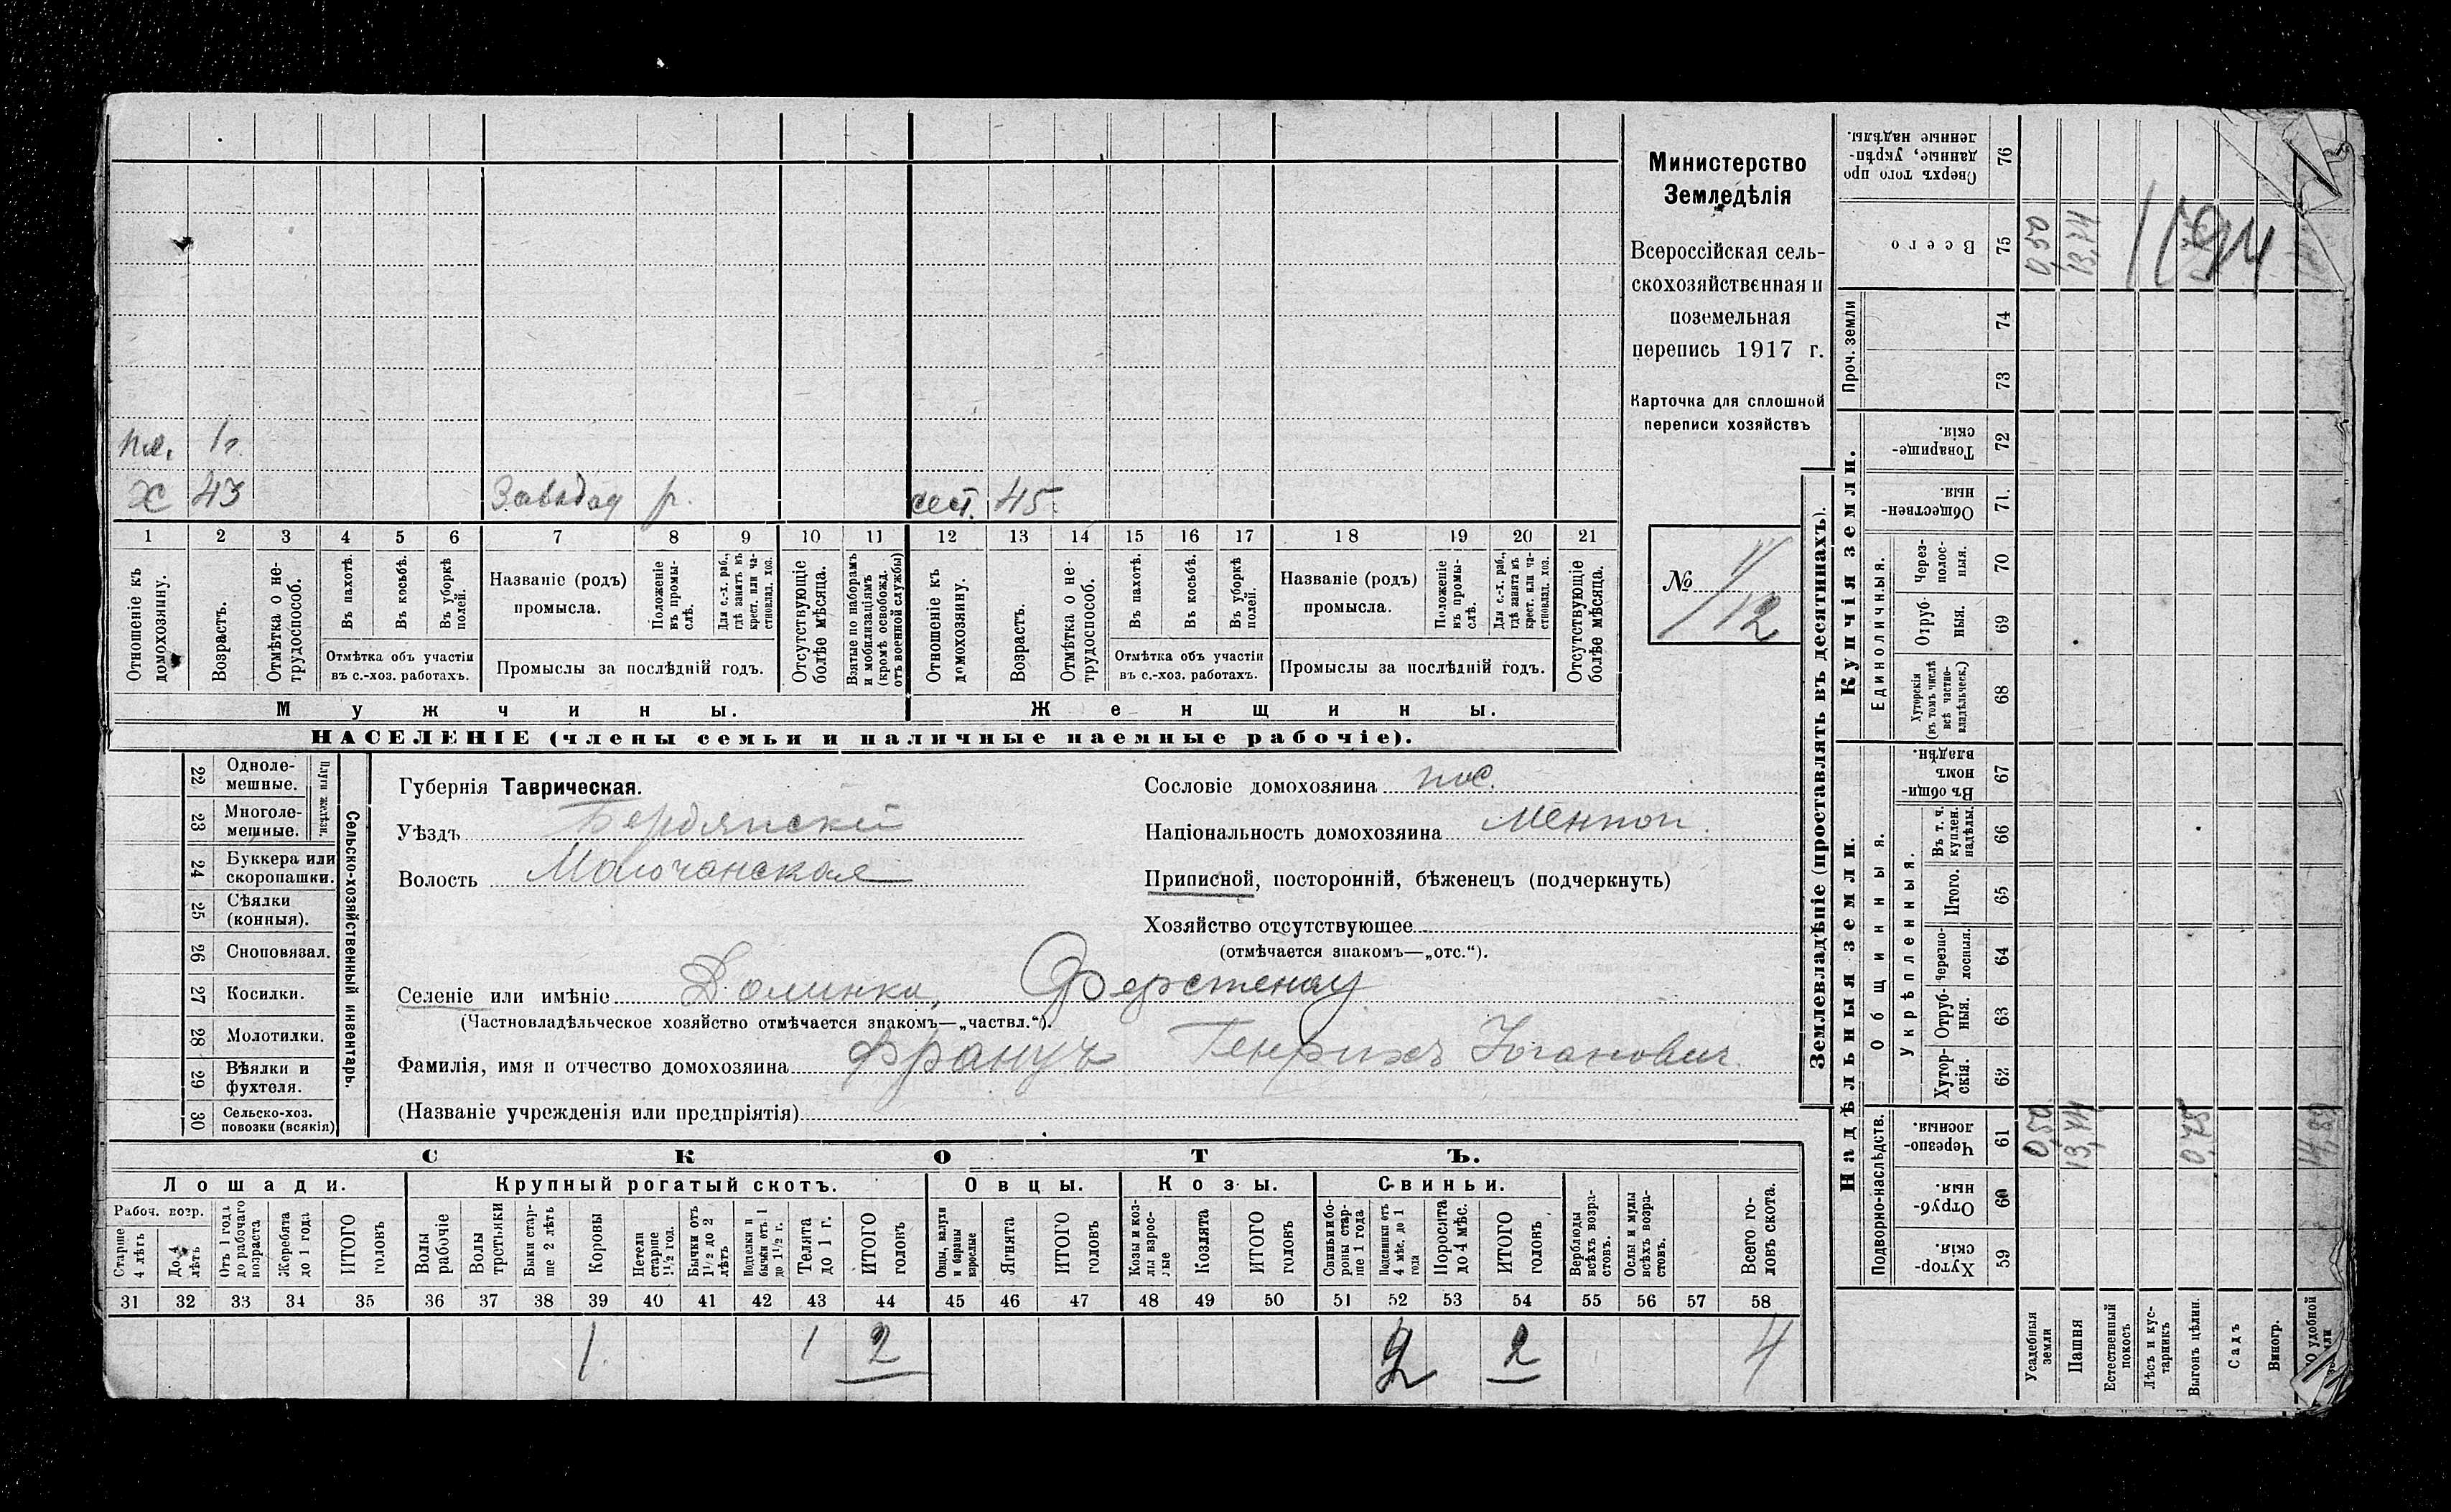 Министерство
Земледѣлія
Всероссійская сель-
скохозяйственная и
поземельная
перепись 1917 г.
Карточка для сплошной
переписи хозяйствъ
№ 12
пл. 1 г.
Х 43 р. сест. 45
1 2 3 4 5 6 7 8 9 10 11 12 13 14 15 16 17 18 19 20 21
Отношеніе къ домохозяину.
Возрастъ.
Отмѣтка о не-трудоспособ.
Въ пахотѣ.
Въ косьбѣ.
Въ уборкѣ полей.
Отмѣтка объ участіи
въ с.-хоз. работахъ.
Названіе (родъ)
промысла.
Положеніе въ промы-слѣ.
Для с.-х. раб., гдѣ занятъ въ крест. или ча-стновлад. хоз.
Промыслы за послѣдній годъ.
Отсутствующіе болѣе мѣсяца.
Взятые по наборамъ и мобилизаціямъ (кромѣ освобожд. отъ военной службы)
Отношеніе къ домохозяину.
Возрастъ.
Отмѣтка о не-трудоспособ.
Въ пахотѣ.
Въ косьбѣ.
Въ уборкѣ полей.
Отмѣтка объ участіи
въ с.-хоз. работахъ.
Названіе (родъ)
промысла.
Положеніе въ промы-слѣ.
Для с.-х. раб., гдѣ занята въ крест. или ча-стновлад. хоз.
Промыслы за послѣдній годъ.
Отсутствующіе болѣе мѣсяца.
Мужчины. Женщины.
НАСЕЛЕНІЕ (члены семьи и наличные наемные рабочіе).
22 Одноле-мешные.
23 Многоле-мешные.
Плуги желѣзн.
24 Буккера или скоропашки.
25 Сѣялки (конныя).
26 Сноповязал.
27 Косилки.
28 Молотилки.
29 Вѣялки и фухтеля.
30 Сельско-хоз. повозки (всякія)
Сельско-хозяйственный инвентарь.
Губернія Таврическая.
Уѣздъ Бердянскій
Волость Молочанская
Сословіе домохозяина пос.
Національность домохозяина Меннон.
Приписной, посторонній, бѣженецъ (подчеркнуть)
Хозяйство отсутствующее
(отмѣчается знакомъ—„отс.“).
Селеніе или имѣніе Долинка, Ферстенау
(Частновладѣльческое хозяйство отмѣчается знакомъ—„частвл.“).
Фамилія, имя и отчество домохозяина Францъ Генрихъ Юганович.
(Названіе учрежденія или предпріятія)
СКОТЪ.
Лошади. Крупный рогатый скотъ. Овцы. Козы. Свиньи.
Рабоч. возр.
Старше 4 лѣтъ
До 4 лѣтъ
Отъ 1 года до рабочаго возраста
Жеребята до 1 года
ИТОГО головъ
Волы рабочіе
Волы третьяки
Быки стар-ше 2 лѣтъ
Коровы
Нетели старше 1½ год.
Бычки отъ 1½ до 2 лѣтъ
Подтелки и бычки отъ 1 до 1½ г.
Телята до 1 г.
ИТОГО головъ
Овцы, валухи и бараны взрослые
Ягнята
ИТОГО головъ
Козы и коз-лы взрос-лые
Козлята
ИТОГО головъ
Свиньи и бо-ровы стар-ше 1 года
Подсвинки отъ 4 мѣс. до 1 года
Поросята до 4 мѣс.
ИТОГО головъ
Верблюды всѣхъ возра-стовъ.
Ослы и мулы всѣхъ возра-стовъ.
Всего го-ловъ скота.
31 32 33 34 35 36 37 38 39 40 41 42 43 44 45 46 47 48 49 50 51 52 53 54 55 56 57 58
1 1 2 2 2 4
Землевладѣніе (проставлять въ десятинахъ).
Надѣльныя земли. Купчія земли. Проч. земли
Подворно-наслѣдств. Общинныя. Укрѣпленныя. Единоличныя.
Хутор-скія. 59
Отруб-ныя. 60
Черезпо-лосныя. 61
Хутор-скія. 62
Отруб-ныя. 63
Черезпо-лосныя. 64
Итого. 65
Въ т. ч. куплен. надѣлы. 66
Въ общи-номъ владѣн. 67
Хуторскія (въ томъ числѣ всѣ частно-владѣльческ.) 68
Отруб-ныя. 69
Через-полос-ныя. 70
Обществен-ныя. 71.
Товарище-скія. 72
73
74
Всего 75
Сверхъ того про данные, укрѣп-ленные надѣлы. 76
Усадебныя земли 0,50 0,50
Пашня 13,44
Естественный покосъ
Лѣсъ и кус-тарникъ
Выгонъ цѣлин. 0,75
Садъ
Виногр.